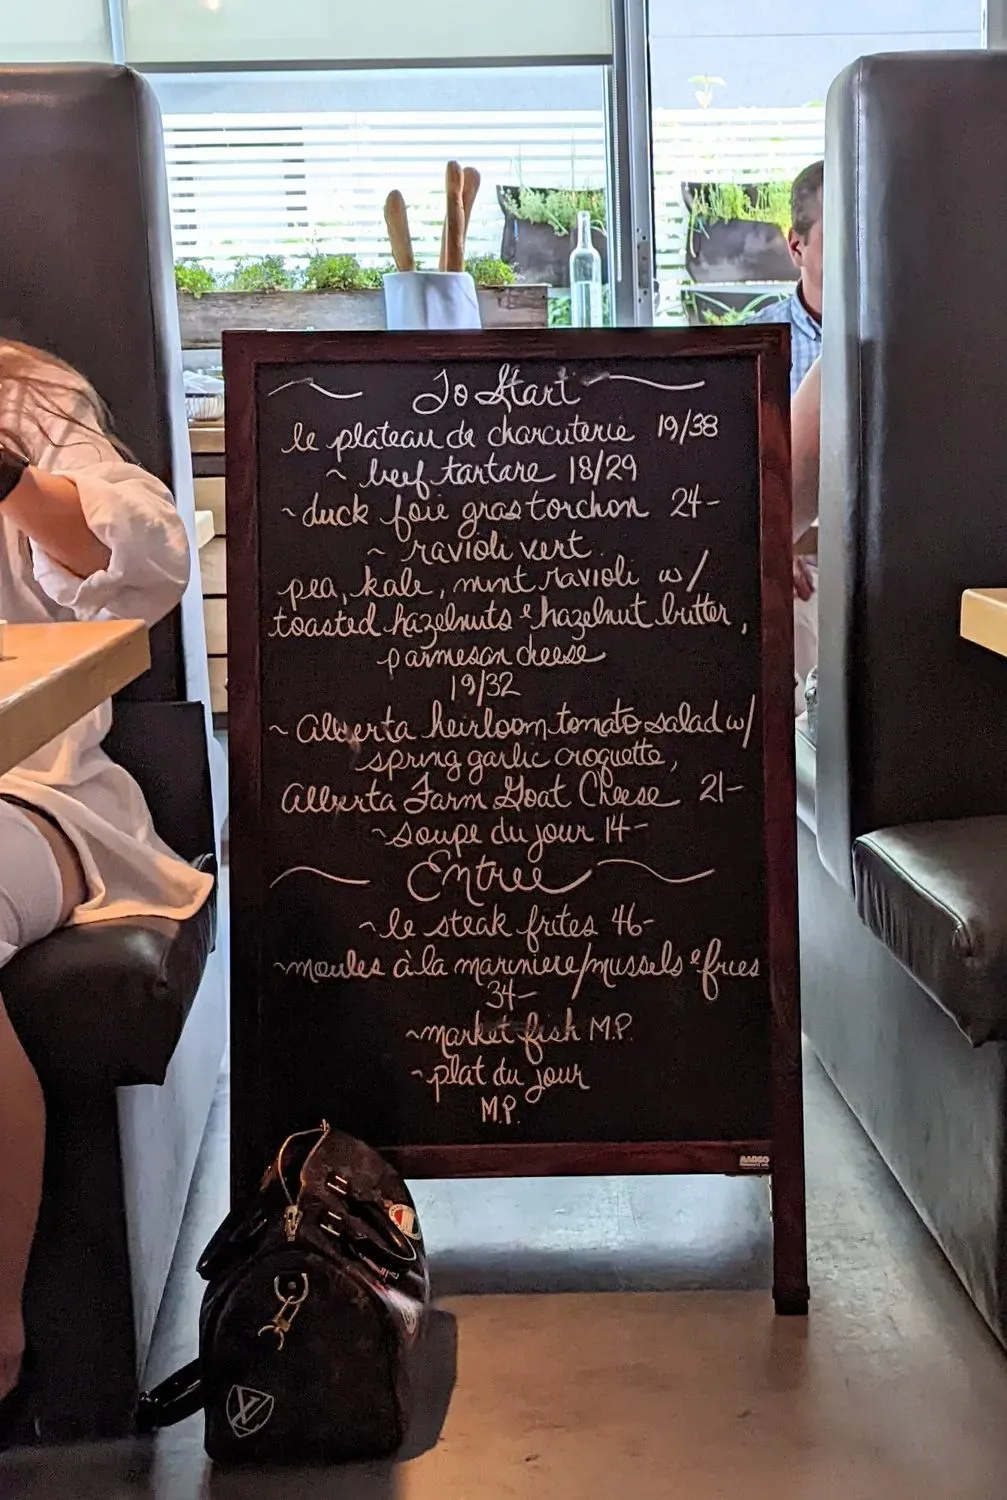 To Start
le plateau de charcuterie 19/38
~ beef tartare 18/29
~duck foie gras torchon 24-
~ ravioli vert
pea, kale, mint ravioli w/
toasted hazelnuts & hazelnut butter,
parmesan cheese
19/32
~ Alberta heirloom tomato salad w/
spring garlic croquette,
Alberta Farm Goat Cheese 21-
~soupe du jour 14-
Entree
~le steak frites 46-
~moules à la mariniere/mussels & fries
34-
~market fish M.P.
~plat du jour
M.P.